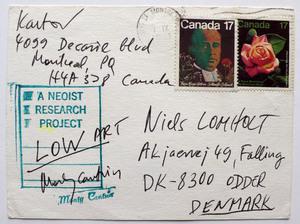 Kantor
4099 Decarie blvd
Montreal, PQ
H4A 3J8 Canada
A NEOIST
RESEARCH
PROJECT
LOW ART
Monty Cantsin
Monty Cantsin
Canada 17
Canada 17
Niels LOMHOLT
Akjaervej 49, Falling
DK-8300 ODDER
DENMARK